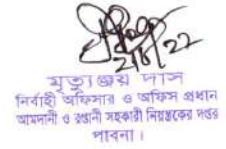 ২১/৪/২২
মৃত্যুঞ্জয় দাস
নির্বাহী অফিসার ও অফিস প্রধান
আমদানী ও রপ্তানী সহকারী নিয়ন্ত্রকের দপ্তর
পাবনা।